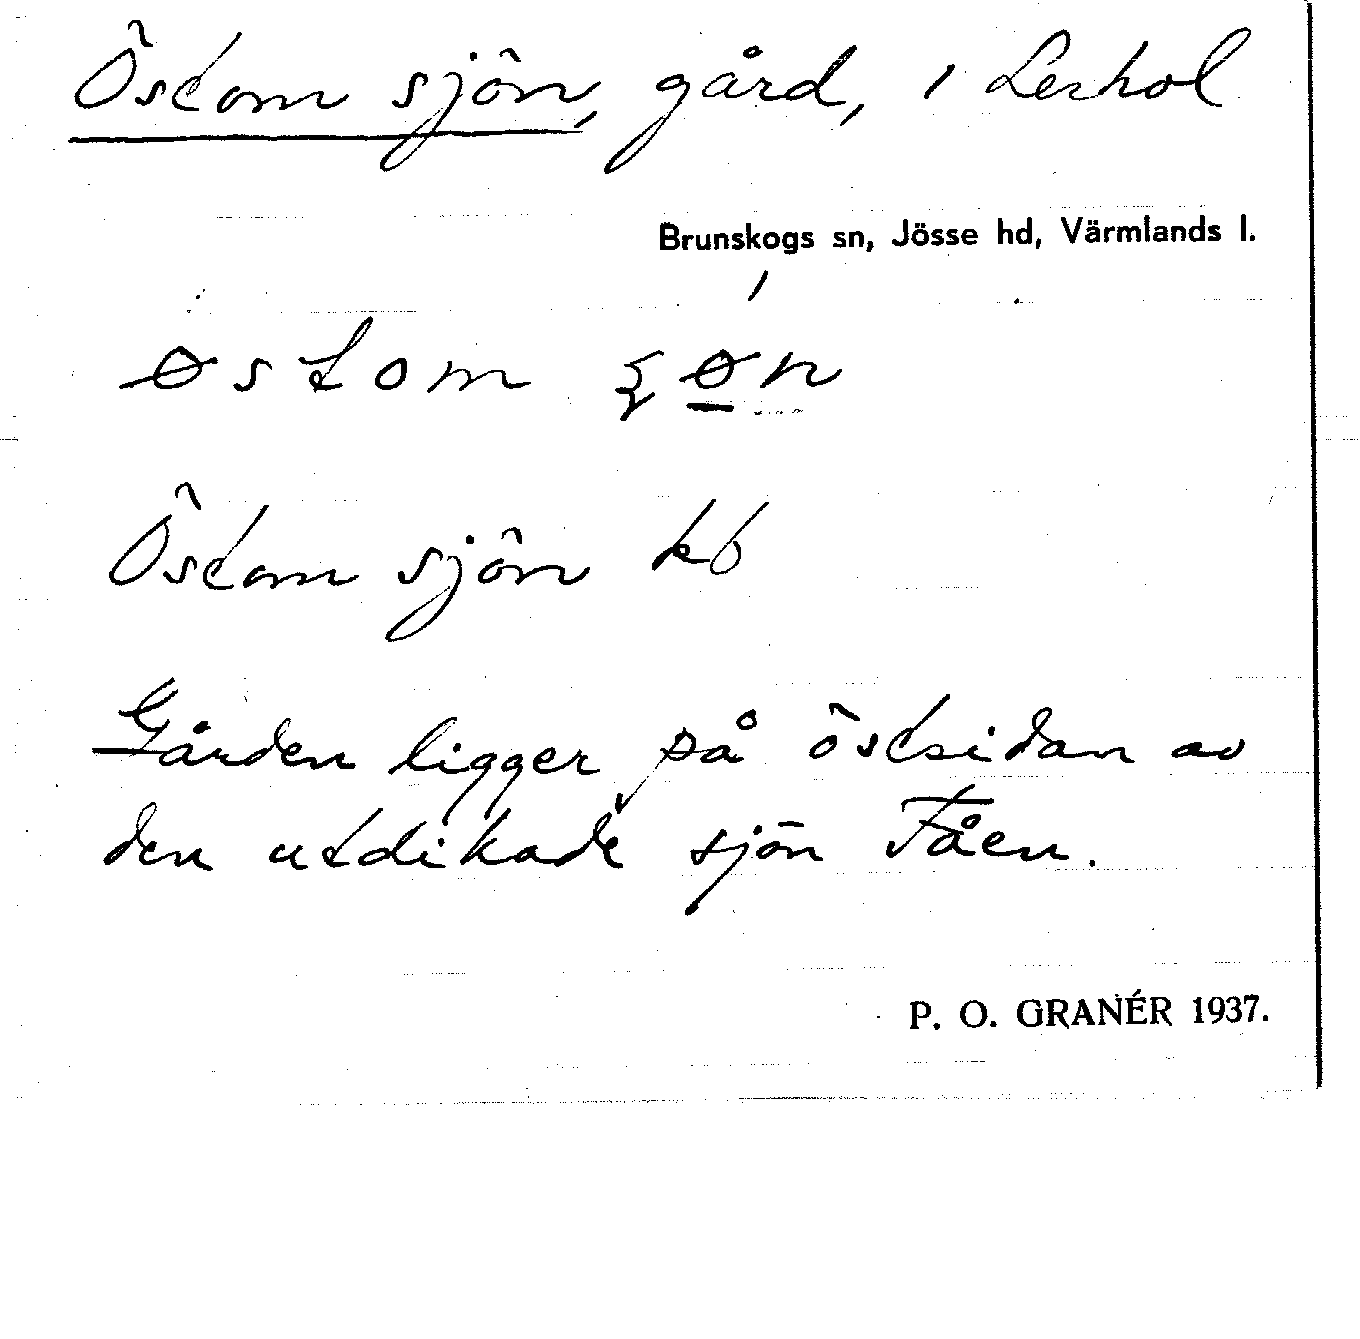 Östom sjön, gård, i Lerhol
Brunskogs sn, Jösse hd, Värmlands l.
østom ʂøn
Östom sjön kb
Gården ligger på östsidan av
den utdikade sjön Fåen.
P. O. GRANÉR 1937.